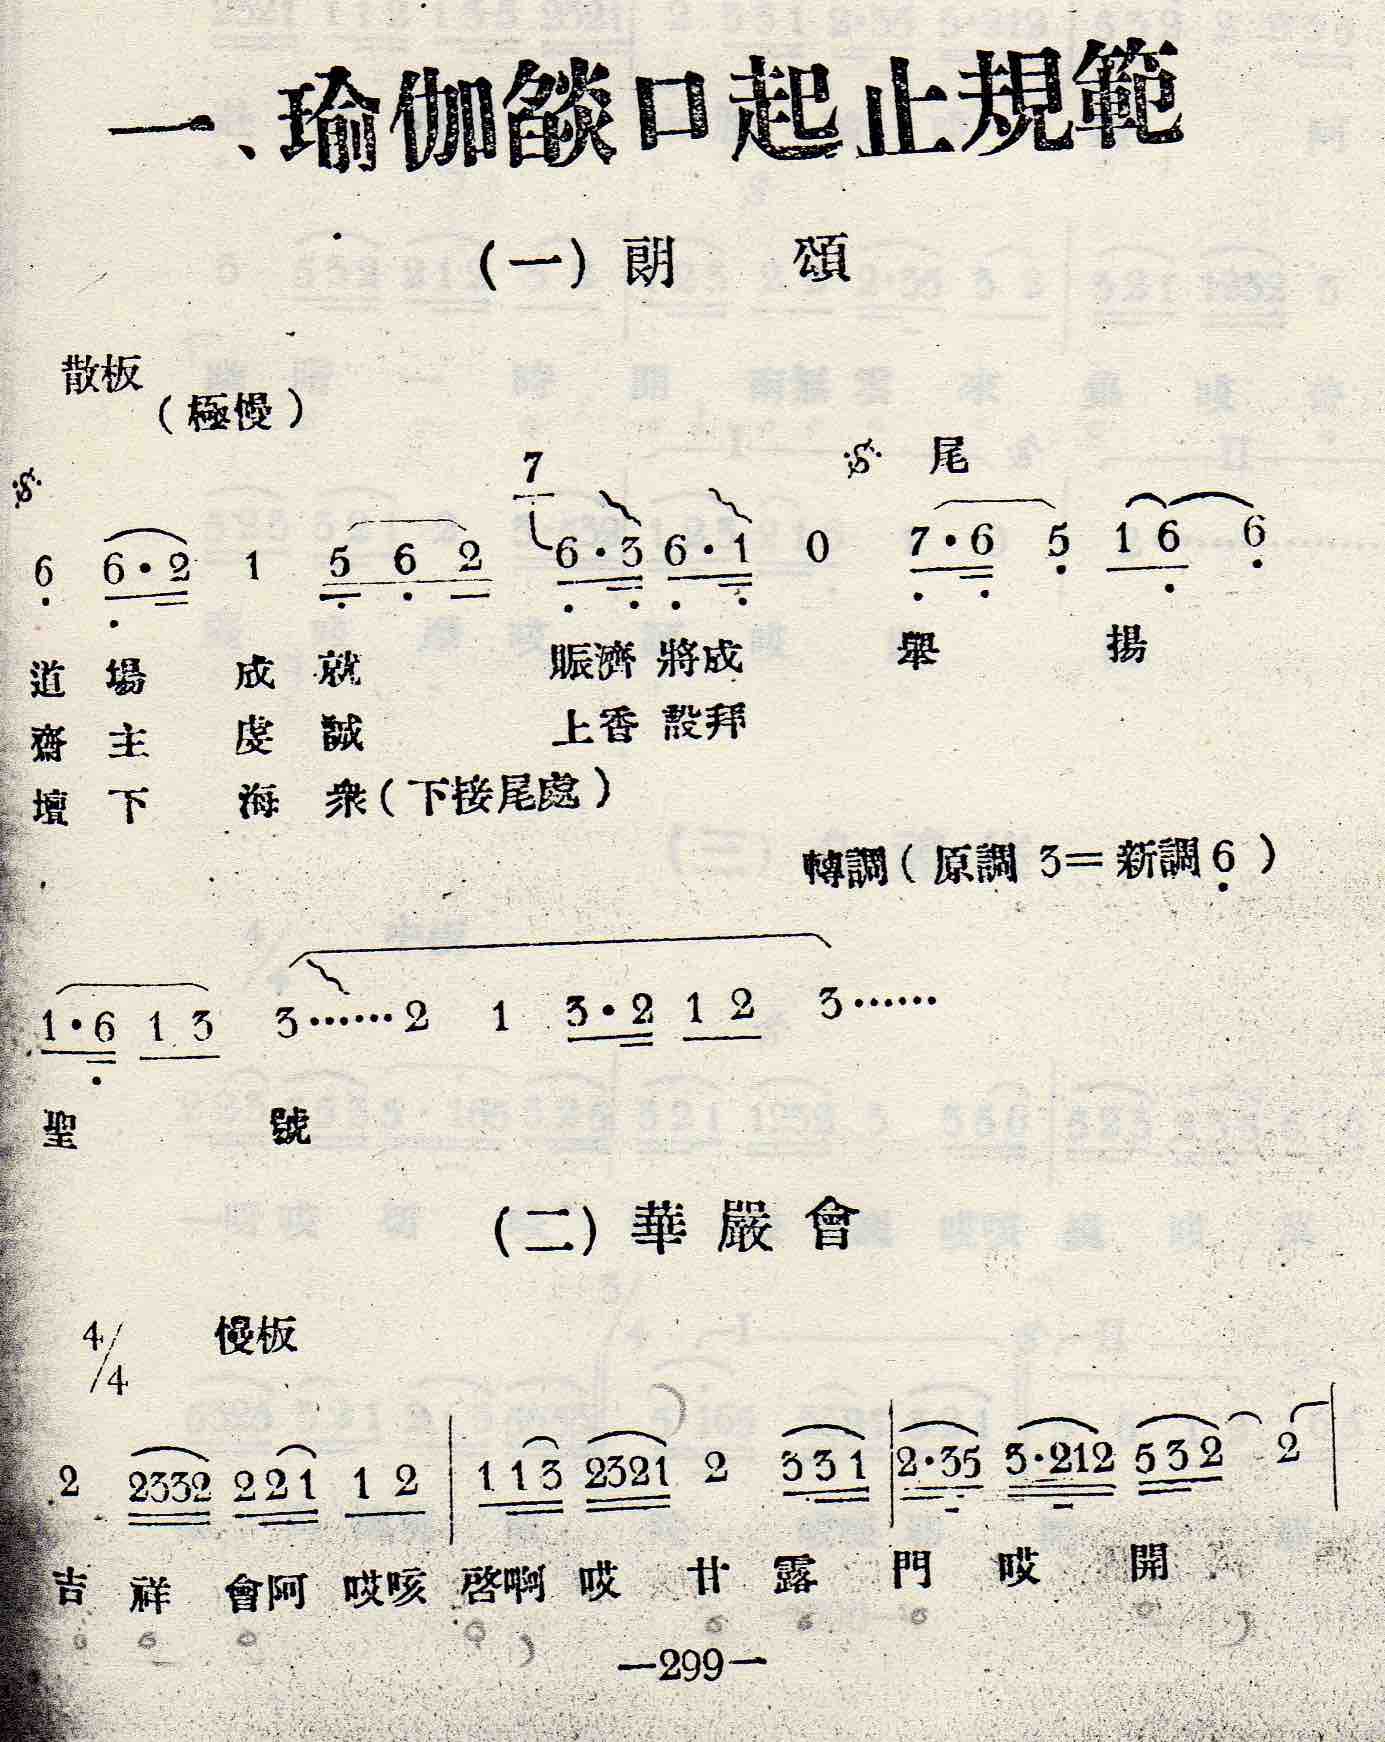 一、瑜伽燄口起止規範
(一) 朗 頌
散板
(極慢)
7
尾
6 6·2 1 5 6 2 6·3 6·1 0 7·6 5 1 6 6
道 場 成 就 賑濟 將成 舉 揚
齋 主 虔 誠 上香 設拜
壇 下 海 衆(下接尾處)
轉調( 原調 3= 新調 6 )
1·6 1 3 3……2 1 3·2 1 2 3……
聖 號
(二) 華 嚴 會
4/4 慢板
2 2332 221 1 2 | 113 2321 2 331 | 2·35 3·212 532 2 |
吉 祥 會阿 哎咳 啓啊 哎 甘 露 門 哎 開
—299—